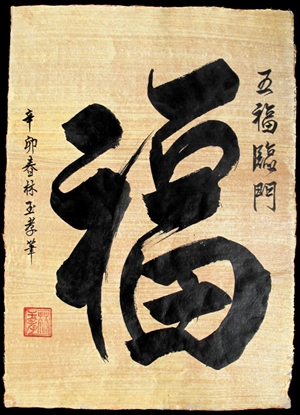 五福臨門
福
辛卯春林玉孝筆